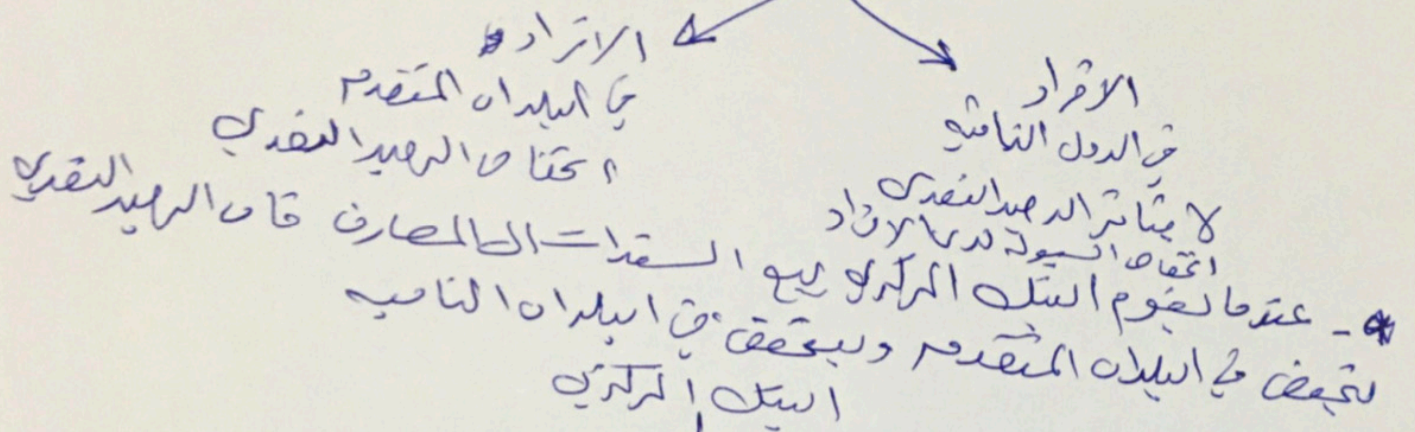 الافراد
في الدول الناميه
لا يتاثر الرصيد النقدي
انخفاض السيولة لدى الافراد
الافراد
في البلدان المتقدمه
انخفاض الرصيد النقدي
- عندما يقوم البنك المركزي ببيع السندات الى المصارف فان الرصيد النقدي
يخفض في البلدان المتقدمه في البلدان الناميه
البنك المركزي